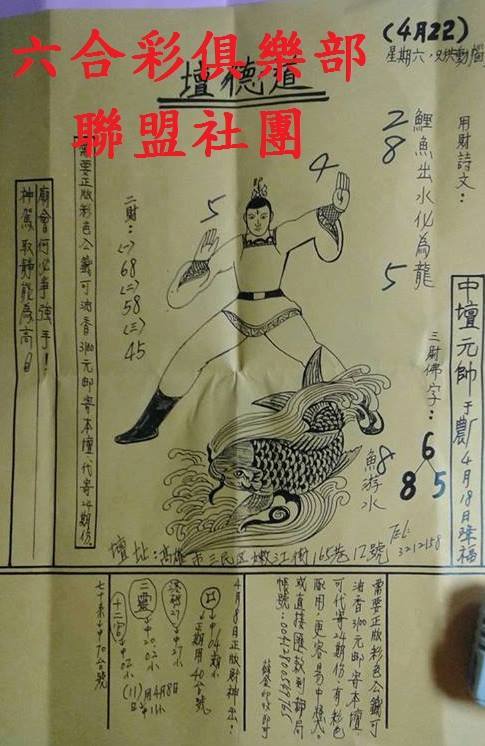 六合彩俱樂部
聯盟社團
(4月22)
星期六
道德壇
用財詩文：
鯉魚出水化為龍
28
5
中壇元帥于農4月18日降福
三財佛字：
6
8 5
4
5
二財：
(一) 68
(二) 58
(三) 45
需要正版彩色公籤可油香3100元郵寄本壇、代寄24期份
廟會何必爭強手！
神駕取
為高日
8
魚游水
壇址：高雄市三民區嫩江街165巷12號
Tel:
3212158
需要正版彩色公籤可
油香3100元郵寄本壇
可代寄24期份．有彩色
配用．更容易中獎人
或直接匯款到郵局
帳號：
4月8日正版財神出：
正期用40台號
二靈
十二宮
(11)月4月8日
七十末中70台號